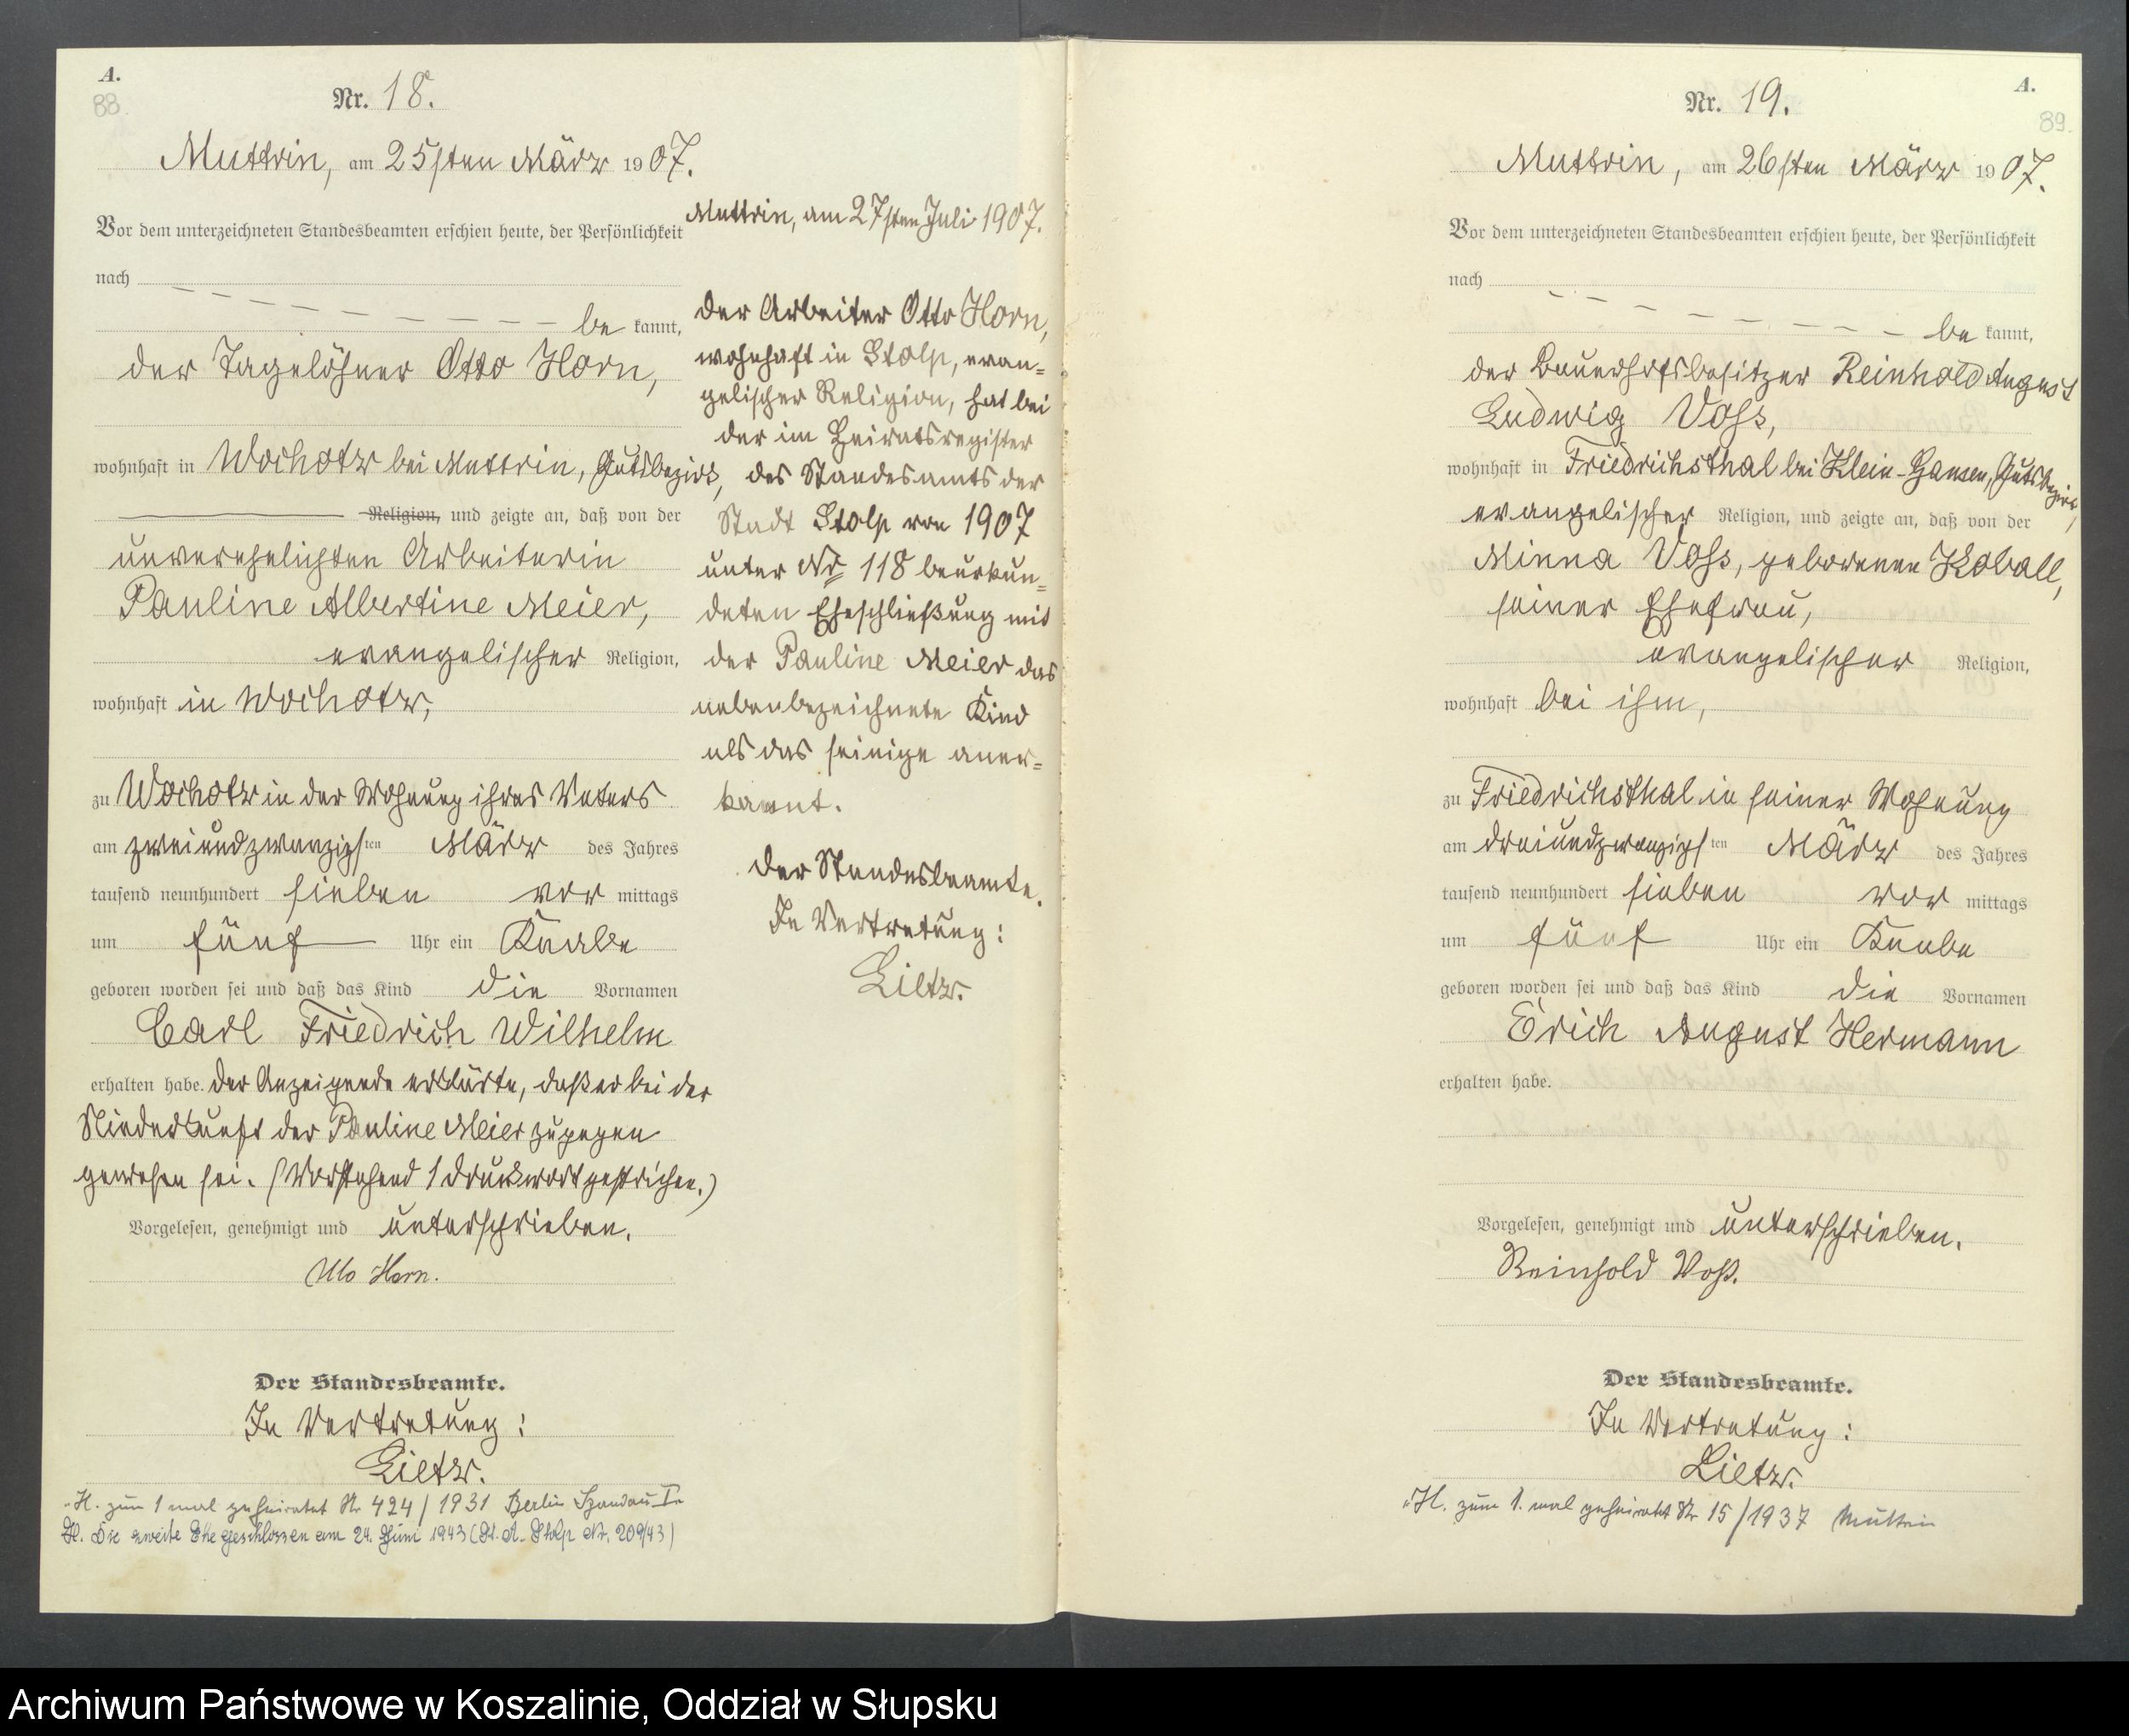 A.
88.
Nr. 18.
Muttrin, am 25sten März 1907.
Vor dem unterzeichneten Standesbeamten erschien heute, der Persönlichkeit
nach
be kannt,
der Tagelöhner Otto Horn,
wohnhaft in Wochotz bei Muttrin, Gutsbezirk,
Religion, und zeigte an, daß von der
unverehelichten Arbeiterin
Pauline Albertine Meier,
evangelischer Religion,
wohnhaft in Wochotz,
zu Wochotz in der Wohnung ihres Vaters
am zweiundzwanzigsten März des Jahres
tausend neunhundert sieben vor mittags
um fünf Uhr ein Knabe
geboren worden sei und daß das Kind die Vornamen
Carl Friedrich Wilhelm
erhalten habe. Der Anzeigende erklärte, daß er bei der
Niederkunft der Pauline Meier zugegen
gewesen sei. (Vorstehend 1 Druckwort gestrichen.)
Vorgelesen, genehmigt und unterschrieben.
Otto Horn.
Der Standesbeamte.
In Vertretung:
Lietz.
H. zum 1 mal geheiratet Nr 424/1931 Berlin Spandau I
H. Die zweite Ehe geschlossen am 24. Juni 1943 (St. A. Stolp Nr. 209/43)
Muttrin, am 27sten Juli 1907.
Der Arbeiter Otto Horn,
wohnhaft in Stolp, evan=
gelischer Religion, hat bei
der im Heiratsregister
des Standesamts der
Stadt Stolp von 1907
unter Nr 118 beurkun=
deten Eheschließung mit
der Pauline Meier das
nebenbezeichnete Kind
als das seinige aner=
kannt.
Der Standesbeamte.
In Vertretung:
Lietz.
A.
89.
Nr. 19.
Muttrin, am 26sten März 1907.
Vor dem unterzeichneten Standesbeamten erschien heute, der Persönlichkeit
nach
be kannt,
der Bauerhofsbesitzer Reinhold August
Ludwig Voss,
wohnhaft in Friedrichsthal bei Klein-Gansen, Gutsbezirk,
evangelischer Religion, und zeigte an, daß von der
Minna Voss, geborenen Koball,
seiner Ehefrau,
evangelischer Religion,
wohnhaft bei ihm,
zu Friedrichsthal in seiner Wohnung
am dreiundzwanzigsten März des Jahres
tausend neunhundert sieben vor mittags
um fünf Uhr ein Knabe
geboren worden sei und daß das Kind die Vornamen
Erich August Hermann
erhalten habe.
Vorgelesen, genehmigt und unterschrieben.
Reinhold Voß.
Der Standesbeamte.
In Vertretung:
Lietz.
H. zum 1. mal geheiratet Nr 15/1937 Muttrin
Archiwum Państwowe w Koszalinie, Oddział w Słupsku